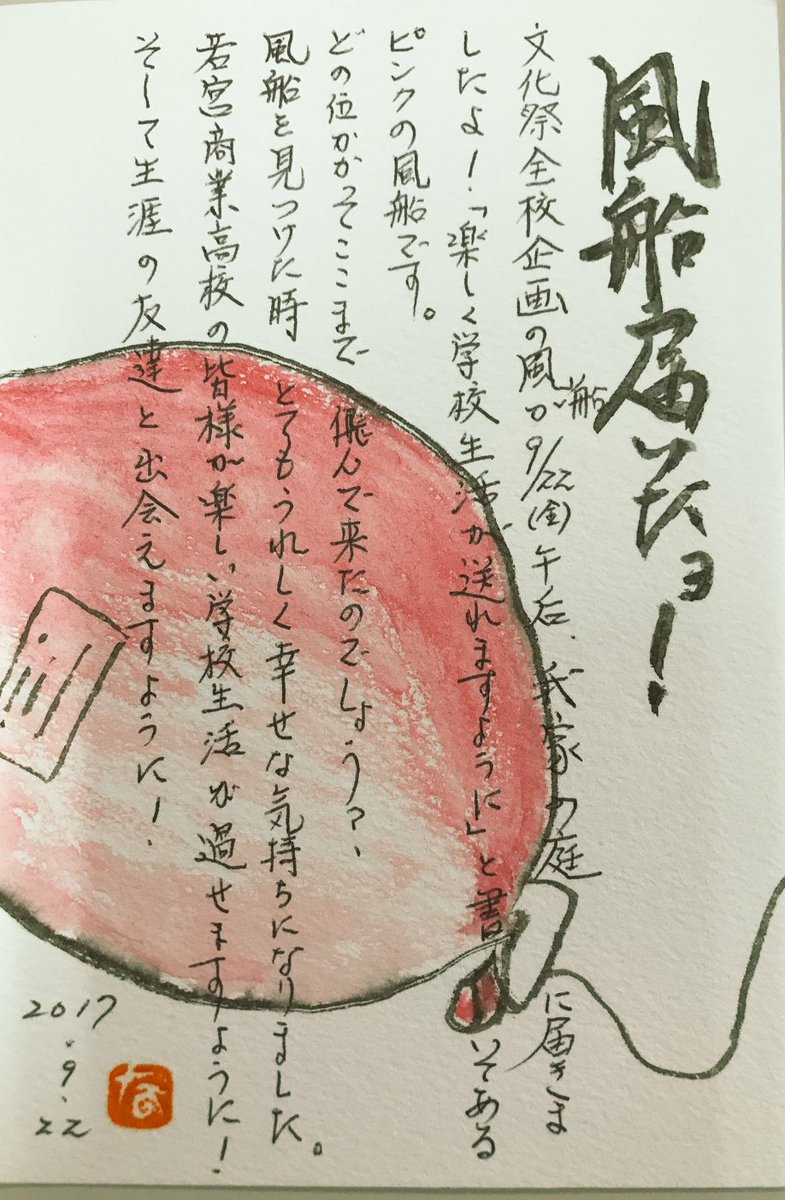 風船届いたョ！
文化祭全校企画の風船が9/22(金)午后、我家の庭に届きま
したよ！「楽しく学校生活が送れますように」と書いてある
ピンクの風船です。
どの位かかってここまで飛んで来たのでしょう？、
風船を見つけた時とてもうれしく幸せな気持ちになりました。
若宮商業高校の皆様が楽しい学校生活が過せますように！
そして生涯の友達と出会えますように！
2017.9.22